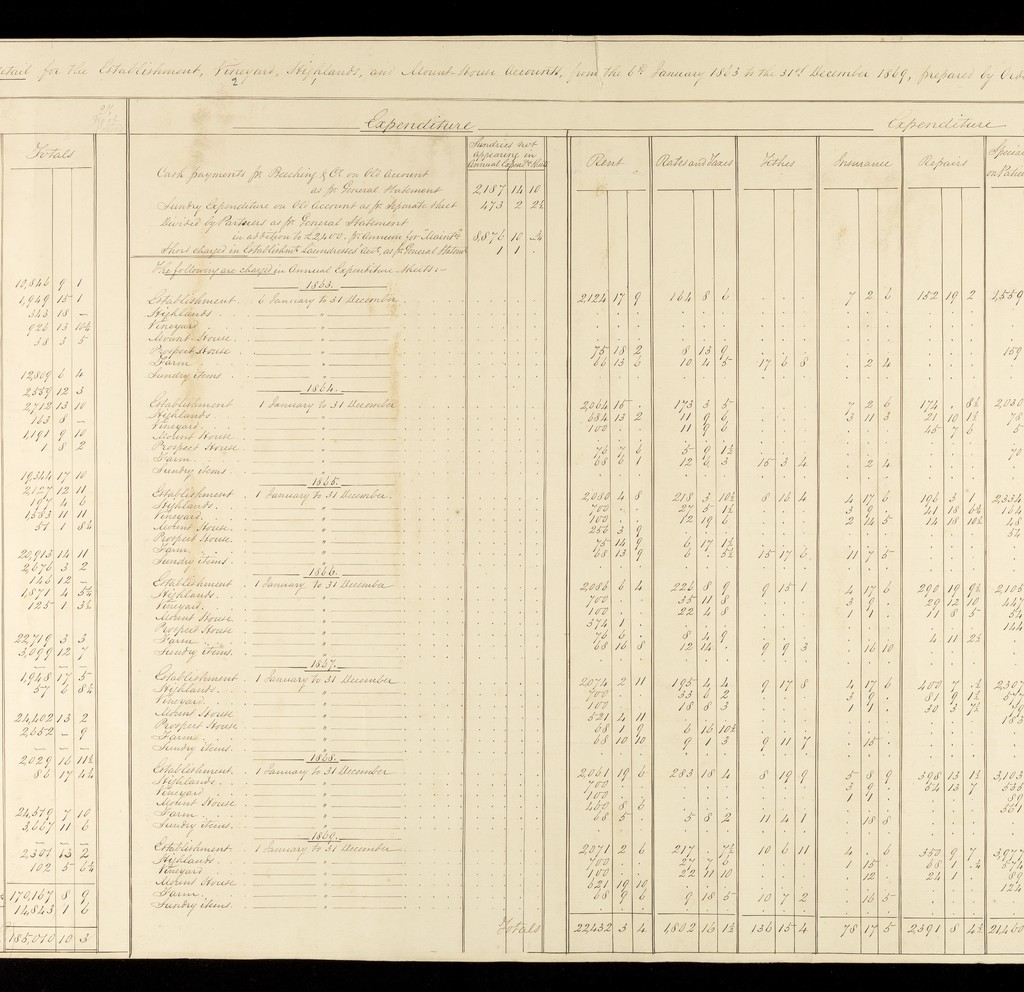 etail for the Establishment, Vineyard, Highlands, and Mount House Accounts, from the 6th January 1863 to the 31st December 1869, prepared by Ord
2
Expenditure
Expenditure
Totals
Sundries not
appearing in
Annual Expendre Sheets
Rent Rates and Taxes Tithes Insurance Repairs Special
on Patien
Cash payments pr Beeching & Co on Old Account
as pr General Statement 2,187 14 10
Sundry Expenditure on Old Account as pr Separate sheet 473 2 2½
Divided by Partners as pr General Statement
in addition to £2,400 pr Annum for "Maintce" 8,876 10
Short charged in Establishmt Laundresses' Acct, as pr General Statemt 1 1 .
The following are charged in Annual Expenditure Sheets:-
10,846 9 1
1863.
1,949 15 1 Establishment 6 January to 31 December 2124 17 9 164 8 6 7 2 6 152 19 2 1,559
343 18 – Highlands "
926 13 10½ Vineyard "
38 3 5 Mount House "
Prospect House " 75 18 2 8 13 9 159
Farm " 66 13 6 10 4 5 17 6 8 . 2 4
12809 6 4 Sundry items "
2559 12 3
1864.
2,712 13 10 Establishment 1 January to 31 December 2,064 15 . 173 3 5 7 2 6 174 . 8½ 2,030
163 8 – Highlands " 684 13 2 11 9 6 3 11 3 21 10 1½ 78
1,191 9 10 Vineyard " 100 11 9 6 45 7 6 5
1 8 2 Mount House "
Prospect House " 76 7 6 5 9 1½ 70
Farm " 68 6 1 12 6 3 15 3 4 . 2 4
19,344 17 10 Sundry items "
2127 12 11
1865.
197 4 6 Establishment 1 January to 31 December 2,080 4 8 218 3 10½ 8 16 4 4 17 6 196 3 1 2,334
1,553 11 11 Highlands " 700 27 5 1½ 3 9 . 41 18 6½ 164
51 1 8½ Vineyard " 100 12 19 6 2 14 5 14 18 10½ 48
Mount House " 256 3 9 54
Prospect House " 75 14 9 6 17 1½
Farm " 68 13 9 6 . 5½ 15 17 6 11 7 5
20,913 14 11 Sundry items "
2,676 3 2
1866.
146 12 – Establishment 1 January to 31 December 2086 6 4 226 8 9 9 15 1 4 17 6 290 19 9½ 2,105
1,871 4 5½ Highlands " 700 35 11 8 3 9 . 29 12 10 447
125 1 3½ Vineyard " 100 22 4 8 1 1 . 11 8 5 54
Mount House " 374 1 144
Prospect House " 76 6 . 8 4 9
22,719 3 3 Farm " 68 16 8 12 14 . 9 9 3 . 16 10 4 11 2½
3,099 12 7 Sundry items "
1867.
– – –
1,948 17 5 Establishment 1 January to 31 December 2074 2 11 195 4 4 9 17 8 4 17 6 400 7 .½ 2,307
57 6 8½ Highlands " 700 33 6 2 3 9 . 81 9 1½ 577
Vineyard " 100 18 8 3 1 1 . 30 3 7½
Mount House " 521 4 11 183
24,402 13 2 Prospect House " 68 1 9 6 16 10½
2,652 – 9 Farm " 68 10 10 9 1 3 9 11 7 . 15 .
– – – Sundry items "
1868.
2029 16 11½ Establishment 1 January to 31 December 2,061 19 6 283 18 4 8 19 9 5 8 9 398 13 1½ 3,103
86 17 4½ Highlands " 700 3 9 . 54 13 7 535
Vineyard " 100 1 1 . 89
Mount House " 460 8 6 561
24,579 7 10 Farm " 68 5 . 5 8 2 11 4 1 . 18 8
3,667 11 6 Sundry items "
1869.
– – –
2301 13 2 Establishment 1 January to 31 December 2,071 2 6 217 . 7½ 10 6 11 4 . 6 350 9 7 3,977
102 5 6½ Highlands " 700 27 7 6 1 15 . 68 1 .½ 574
Vineyard " 100 22 11 10 . 12 . 24 1 . 89
Mount House " 621 19 10 124
170,167 8 9 Farm " 68 9 6 9 18 5 10 7 2 . 16 5
14,843 1 6 Sundry items "
185,010 10 3 Totals 22432 3 4 1802 16 1½ 136 15 4 78 17 5 2391 8 4½ 21,460